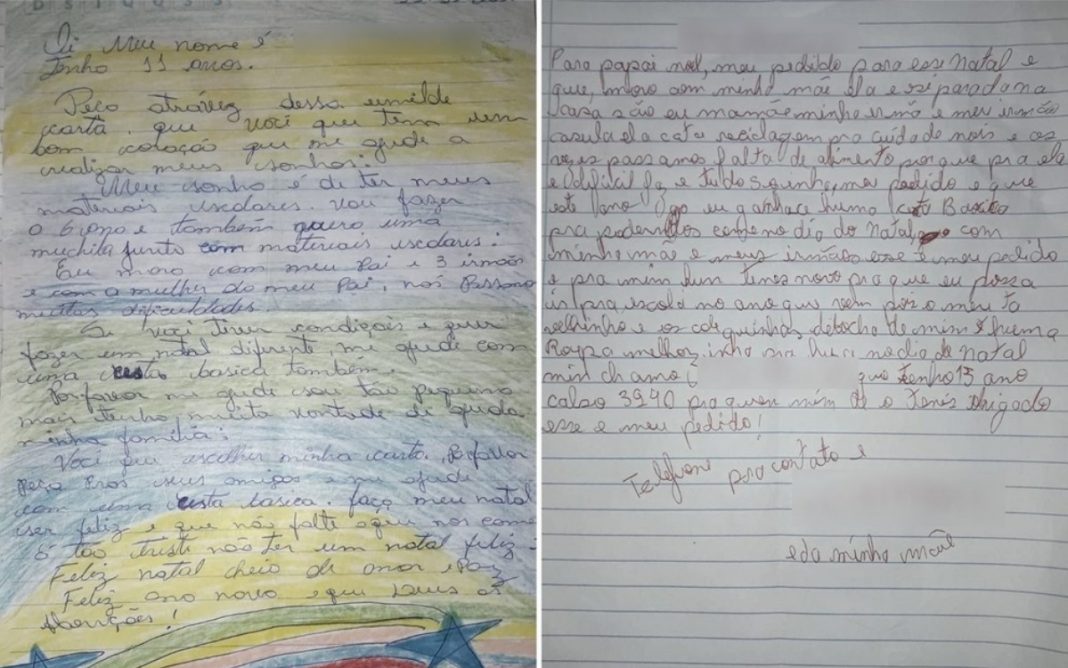 Oi Meu nome é
Tenho 11 anos.
Peço atrávez dessa umilde
carta. que você que tem um
bom colação que me ajude a
realizar meus sonhos:
Meu sonho é di ter meus
materiais uscolares. vou fazer
o 6º ano e também quero uma
muchila junto com materiais uscolares:
Eu moro com meu Pai e 3 irmãos
e com a mulher do meu Pai, nós Passamo
muitas dificuldades.
Se você tiver condiçõis e quer
fazer um natal diferente, me ajude com
uma cesta basica também.
Porfavor me ajude sou tão pequeno
mais tenho muita vontade di ajuda
minha família:
Você qui escolher minha carta. Porfavor
peça Pros seus amigos e me ajude
com uma cesta basica. faça meu natal
ser feliz e que não falte oque nos come
é tão triste não ter um natal feliz:
Feliz natal cheio di amor e Paz
Feliz ano novo e que Deus os
Abençõis!
Para papai noel, meu pedido para esse Natal e
que, moro com minha mãe ela e separada na
casa são eu mamãe minha irmã e meu irmão
casula ela cata reciclagem pra cuida de nois e as
vezes passamos falta de alimento porque pra ela
e dificil faz e tudo sozinha, meu pedido e que
este ano eu ganhace huma Basica
pra podermos come no dia do Natal, com
minha mãe e meus irmãos esse e meu pedido
e pra mim hum tenes novo pra que eu possa
ir pra escola no ano que vem pois o meu ta
velhinho e os coleguinhas debocha de mim e huma
Roupa melhorzinha pra huza no dia do Natal
mim chamo
que tenho 13 ano
calso 39 40 pra quem mim dé o tenis obrigado
esse e meu pedido!
Telefone pra contato e
e da minha mãe